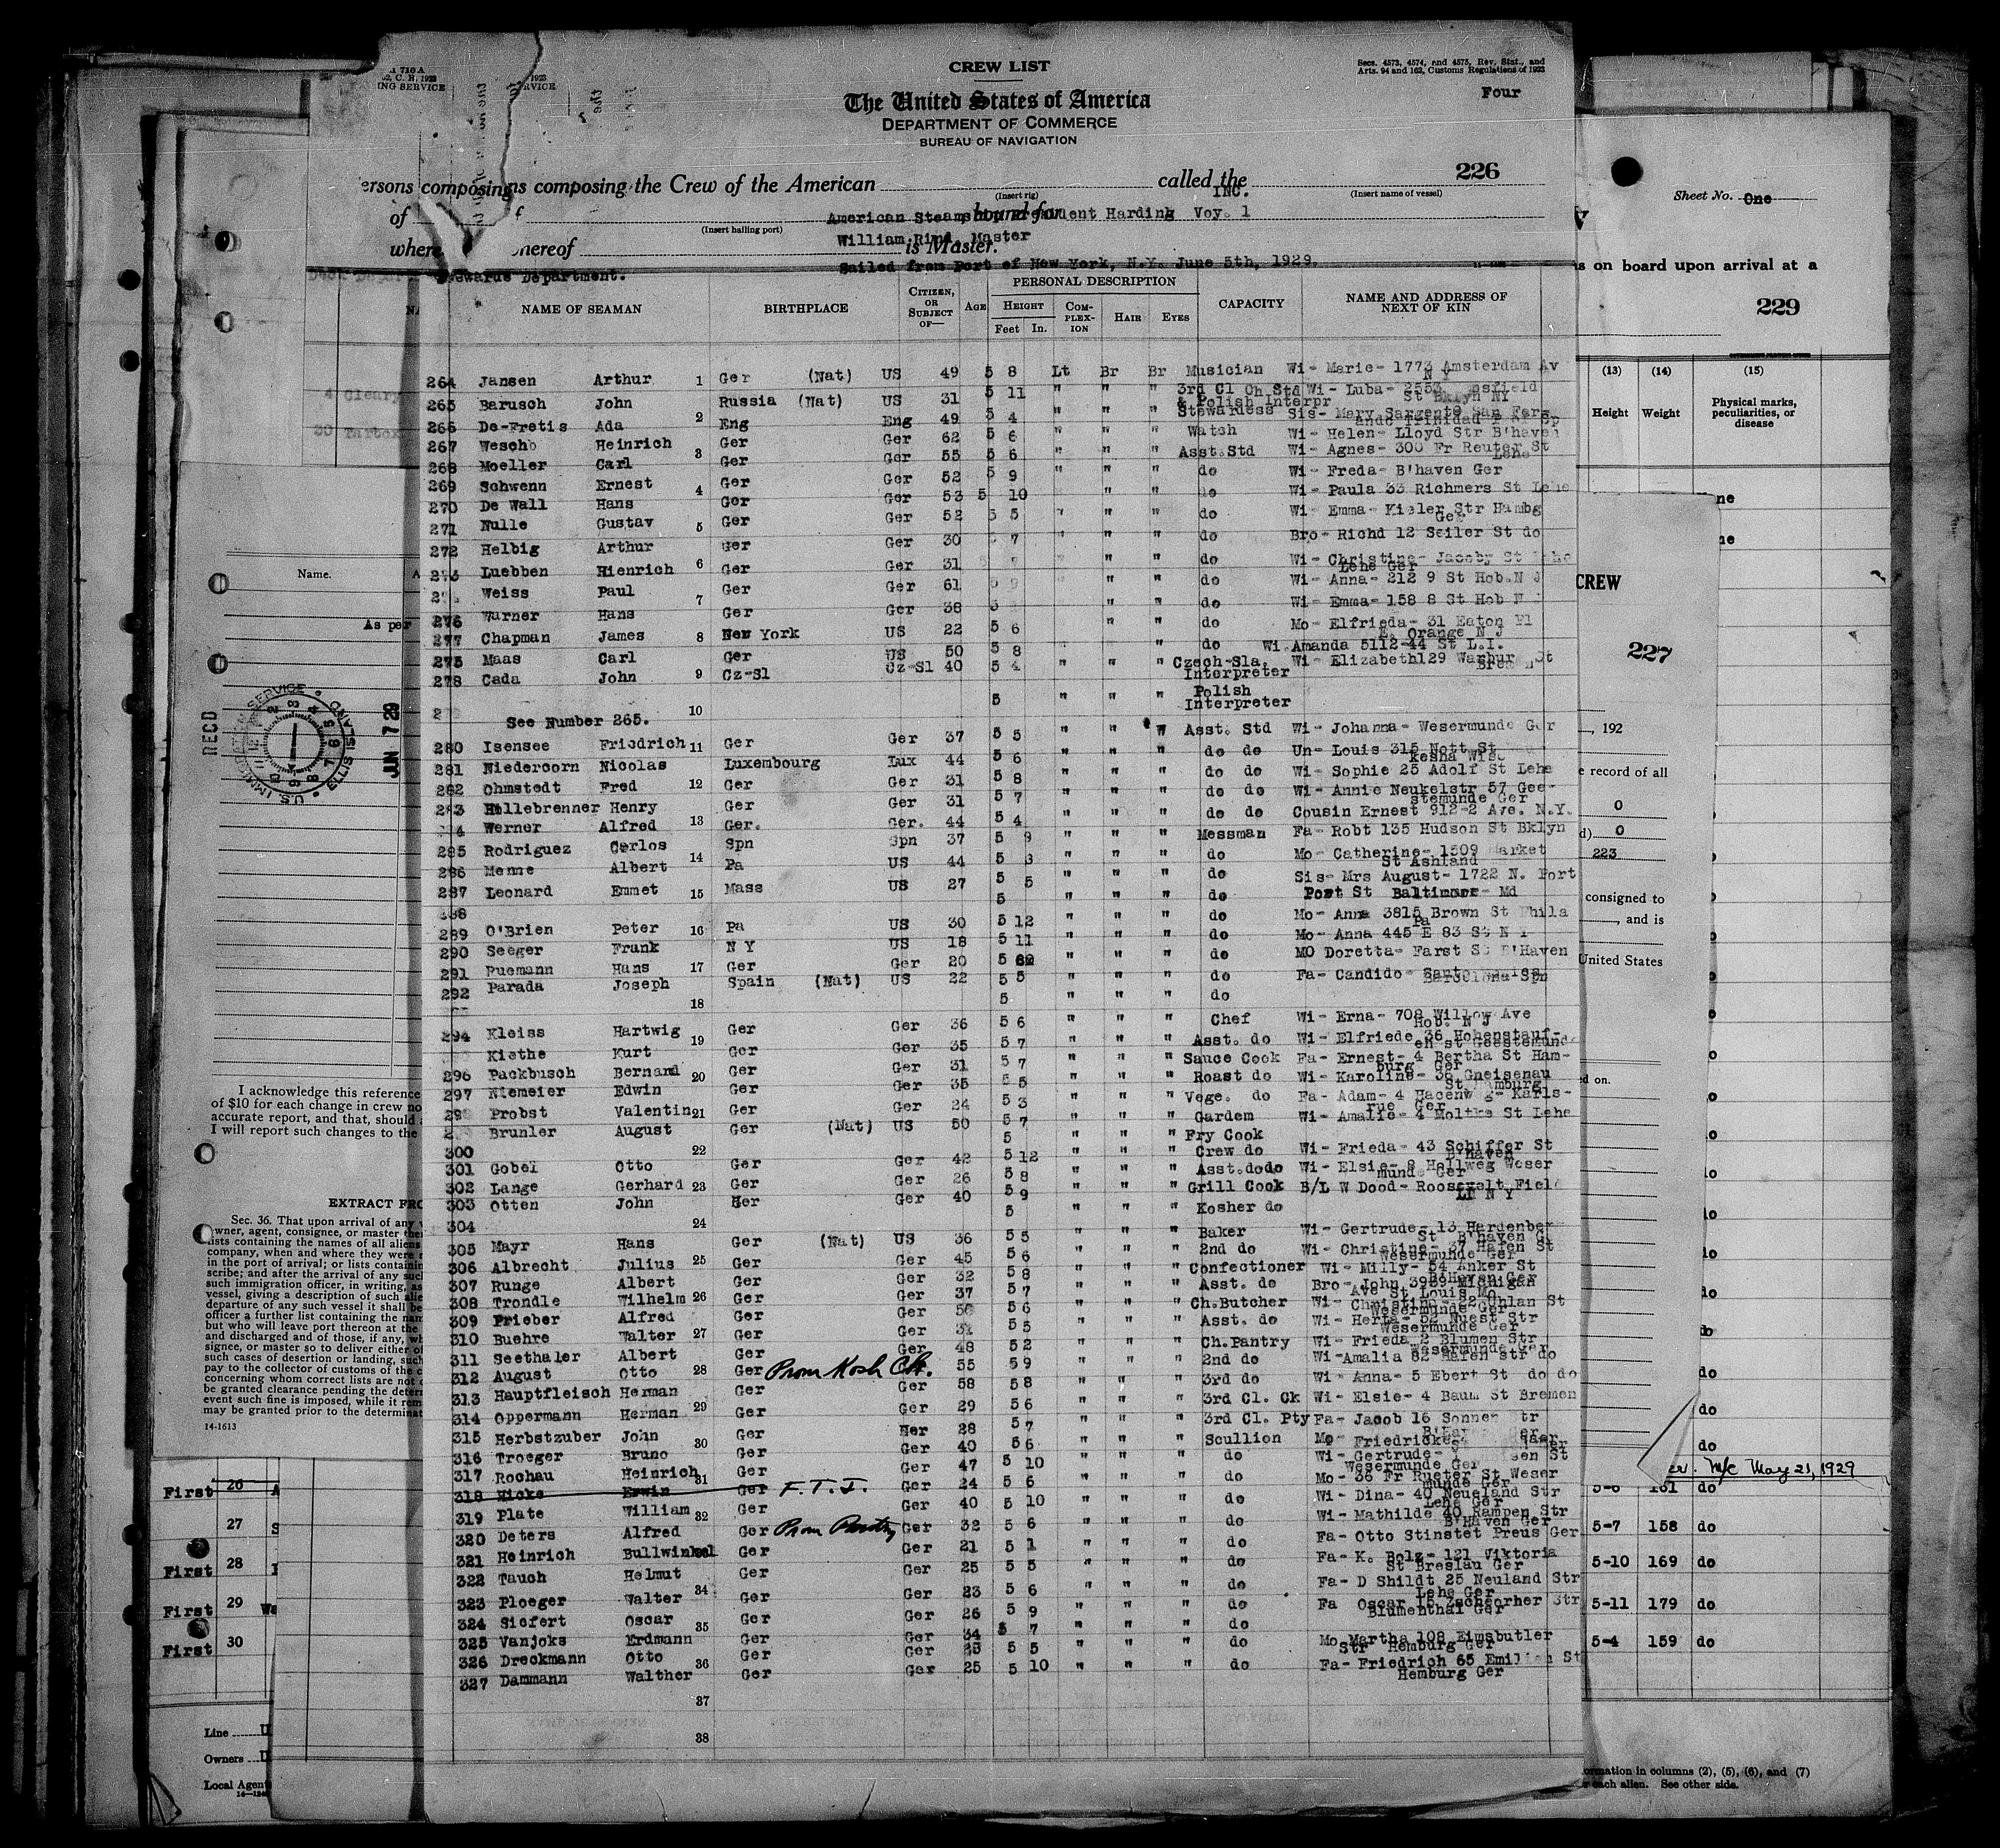 CREW LIST
Secs. 4573, 4574, and 4575, Rev. Stat., and
Arts. 94 and 162, Customs Regulations of 1923
Four
The United States of America
DEPARTMENT OF COMMERCE
BUREAU OF NAVIGATION
226
composing the Crew of the American called the
(Insert rig) (Insert name of vessel)
INC.
of bound for
American Harding Voy. 1
(Insert hailing port)
William Master
where is Master.
Sailed from Port of New York, N.Y. June 5th, 1929.
Department.
NAME OF SEAMAN BIRTHPLACE CITIZEN, OR SUBJECT OF— AGE PERSONAL DESCRIPTION CAPACITY NAME AND ADDRESS OF NEXT OF KIN
HEIGHT COMPLEXION HAIR EYES
Feet In.
264 Jansen Arthur 1 Ger (Nat) US 49 5 8 Lt Br Br Musician Wi- Marie- 1773 Amsterdam Av
N Y
265 Barusch John Russia (Nat) US 31 5 11 " " " 3rd Cl Ch Std Wi- Luba- 2553
& Polish Interpr St Bklyn NY
266 De-Fretis Ada 2 Eng Eng 49 5 4 " " " Stewardess Sis- Mary Sargente San Fern
267 Heinrich Ger Ger 62 5 6 " " " Watch Wi- Helen- Lloyd Str B'haven
268 Moeller Carl 3 Ger Ger 55 5 6 " " " Asst.Std Wi- Agnes- 300 Fr Reuter St
Lehe
269 Schwenn Ernest 4 Ger Ger 52 5 9 " " " do Wi- Freda- B'haven Ger
270 De Wall Hans Ger Ger 53 5 10 " " do Wi- Paula 33 Richmers St Lehe
271 Nulle Gustav 5 Ger Ger 52 5 5 " " " do Wi- Emma- Kieler Str Hambg
Ger
272 Helbig Arthur Ger Ger 30 7 " " " do Bro- Richd 12 Seiler St do
Luebben Hienrich 6 Ger Ger 31 " " do Wi- Christine- Jacoby St
Lehe Ger
Weiss Paul 7 Ger Ger 61 9 " " do Wi- Anna- 212 9 St Hob.N J
276 Warner Hans Ger Ger 38 5 " " do Wi- Emma- 158 8 St Hob N J
277 Chapman James 8 New York US 22 5 6 " " do Mo- Elfrieda- 31 Eaton Pl
E. Orange N J
275 Maas Carl Ger US 50 5 8 " do Wi Amanda 5112-44 St L.I.
278 Cada John 9 Cz-Sl Cz-Sl 40 5 4 " " " Czech-Sla. Interpreter Wi- Elizabeth129
10 See Number 265. 5 " " " Polish Interpreter
280 Isensee Friedrich 11 Ger Ger 37 5 5 " " Asst. Std Wi- Johanna- Wesermunde Ger
281 Niedercorn Nicolas Luxembourg Lux 44 5 6 " " " do do Un- Louis 315 Nott St
kesha Wisc
282 Ohmstedt Fred 12 Ger Ger 31 5 8 " " " do do Wi- Sophie 25 Adolf St Lehe
283 Hillebrenner Henry Ger Ger 31 5 7 " " " do do Wi- Annie Neukelstr 57 Gee-
stemunde Ger
Werner Alfred 13 Ger. Ger. 44 5 4 " " " do do Cousin Ernest 912-2 Ave. N.Y.
285 Rodriguez Carlos Spn Spn 37 5 " " " Messman Fa- Robt 135 Hudson St Bklyn
286 Menne Albert 14 Pa US 44 5 " " " do Mo- Catherine- 1509 Market
St Ashland
287 Leonard Emmet 15 Mass US 27 5 5 " " " do Sis- Mrs August- 1722 N. Port
5 " " " do Post St Baltimore- Md
289 O'Brien Peter 16 Pa US 30 5 12 " " " do Mo- Anna 3815 Brown St Phila
Pa
290 Seeger Frank N Y US 18 5 11 " " " do Mo- Anna 445 E 83 St N Y
291 Ruemann Hans 17 Ger Ger 20 5 " " " do MO Doretta- Farst St B'Haven
292 Parada Joseph Spain (Nat) US 22 5 5 " " " do Fa- Candido-
Barcelona Spn
18 5 " " " do
294 Kleiss Hartwig 19 Ger Ger 36 5 6 " " " Chef Wi- Erna- 708 Willow Ave
Hob. N J
Kiethe Kurt Ger Ger 35 5 7 " " " Asst. do Wi- Elfriede 36 Hohenstauf-
en st Geestemunde
296 Packbusch Bernand 20 Ger Ger 31 5 7 " " " Sauce Cook Fa- Ernest- 4 Bertha St Ham-
burg Ger
297 Niemeier Edwin Ger Ger 35 5 5 " " " Roast do Wi- Karoline- 36 Gneisenau
Probst Valentin 21 Ger Ger 24 5 3 " " " Vege. do Fa- Adam- 4 Karls-
rue Ger
Brunler August Ger (Nat) US 50 5 7 " " " Gardem Wi- Amalie- 4 Moltke St Lehe
300 22 5 " " " Fry Cook
301 Gobel Otto Ger Ger 42 5 12 " " " Crew do Wi- Frieda- 43 Schiffer St
B'haven
302 Lange Gerhard 23 Ger Ger 26 5 8 " " " Asst.dodo Wi- Elsie- 8 Hellweg Weser
munde Ger
303 Otten John Ger Ger 40 5 9 " " " Grill Cook B/L W Dood- Roosevelt Field
LI N Y
304 24 5 " " " Kosher do
305 Mayr Hans Ger (Nat) US 36 5 5 " " " Baker Wi- Gertrude- 13 Hardenber
306 Albrecht Julius 25 Ger Ger 45 5 6 " " " 2nd do Wi- Christine- 37 Hafen St
Wesermunde Ger
307 Runge Albert Ger Ger 32 5 8 " " " Confectioner Wi- Milly- 54 Anker St
B'Haven Ger
308 Trondle Wilhelm 26 Ger Ger 37 5 7 " " " Asst. do Bro- John 3959 Michigan
Ave St Louis Mo
309 Prieber Alfred Ger Ger 5 6 " " " Ch.Butcher Wi- Christine- 22 Uhlan St
Wesermunde Ger
310 Buehre Walter 27 Ger Ger 5 5 " " " Asst. do Wi- Herta- 52 Nuest Str
Wesermunde Ger
311 Seethaler Albert Ger Ger 48 5 2 " " " Ch.Pantry Wi- Frieda 2 Blumen Str
Wesermunde Ger
312 August Otto 28 Ger Prom Kosh Ck. 55 5 9 " " " 2nd do Wi-Amalia 62 Hafen str do
313 Hauptfleisch Herman Ger Ger 58 5 8 " " " 3rd do Wi- Anna- 5 Ebert St do do
314 Oppermann Herman 29 Ger Ger 29 5 6 " " " 3rd Cl. Ck Wi- Elsie- 4 Baum St Bremen
315 Herbstzuber John 30 Ger Her 28 5 7 " " " 3rd Cl. Pty Fa- Jacob 16 Sonnen
316 Troeger Bruno Ger Ger 40 5 6 " " " Scullion Mo- Friedricke-
317 Rochau Heinrich 31 Ger Ger 47 5 10 " " " do Wi- Gertrude-
Wesermunde Ger
318 Hicke Erwin Ger F.T.J. Ger 24 5 6 " " " do Mo- 36 Fr Rueter St Weser
munde Ger
319 Plate William 32 Ger Ger 40 5 10 " " " do Wi- Dina- 40 Neueland Str
Lehe Ger
320 Deters Alfred Ger Prom Pantry Ger 32 5 6 " " " do Wi- Mathilde 40 Rampen Str
B'Haven Ger
321 Heinrich Bullwinkel Ger Ger 21 5 1 " " " do Fa- Otto Stinstet Preus Ger
322 Tauch Helmut Ger Ger 25 5 5 " " " do Fa- K. Bolz- 121 Viktoria
St Breslau Ger
323 Ploeger Walter 34 Ger Ger 23 5 6 " " " do Fa- D Shildt 25 Neuland Str
Lehe Ger
324 Siefert Oscar 35 Ger Ger 26 5 9 " " " do Fa Oscar 15 Zscheorher Str
Blumenthal Ger
325 Vanjoks Erdmann Ger Ger 34 5 7 " " " do
326 Dreckmann Otto 36 Ger Ger 25 5 5 " " " do Mo Martha 108 Eimsbutler
Str Hemburg Ger
327 Dammann Walther Ger Ger 25 5 10 " " " do Fa- Friedrich 65 Emilien St
Hemburg Ger
37
38
Name.
As per
RECD
U.S. IMMIGRATION SERVICE ELLIS ISLAND
JUN 7 29
I acknowledge this reference
of $10 for each change in crew
accurate report, and that, should
I will report such changes to the
EXTRACT
Sec. 36. That upon arrival of any
owner, agent, consignee, or master
lists containing the names of all aliens
company, when and where they were
in the port of arrival; or lists
scribe; and after the arrival of any such
such immigration officer, in writing, as
vessel, giving a description of such
departure of any such vessel it shall be
officer a further list containing the
but who will leave port thereon at the
and discharged and of those, if any,
signee, or master so to deliver either
such cases of desertion or landing, such
pay to the collector of customs of the
concerning whom correct lists are not
be granted clearance pending the
event such fine is imposed, while it
may be granted prior to the
14-1613
First 26
27
First 28
First 29
First 30
Line
Owners
Local Agent
Sheet No. One
on board upon arrival at a
229
(13) (14) (15)
Height Weight Physical marks, peculiarities, or disease
CREW
227
, 192
record of all
0
0
223
consigned to
, and is
United States
May 21, 1929
161 do
5-7 158 do
5-10 169 do
5-11 179 do
5-4 159 do
in columns (2), (5), (6), and (7)
each alien. See other side.